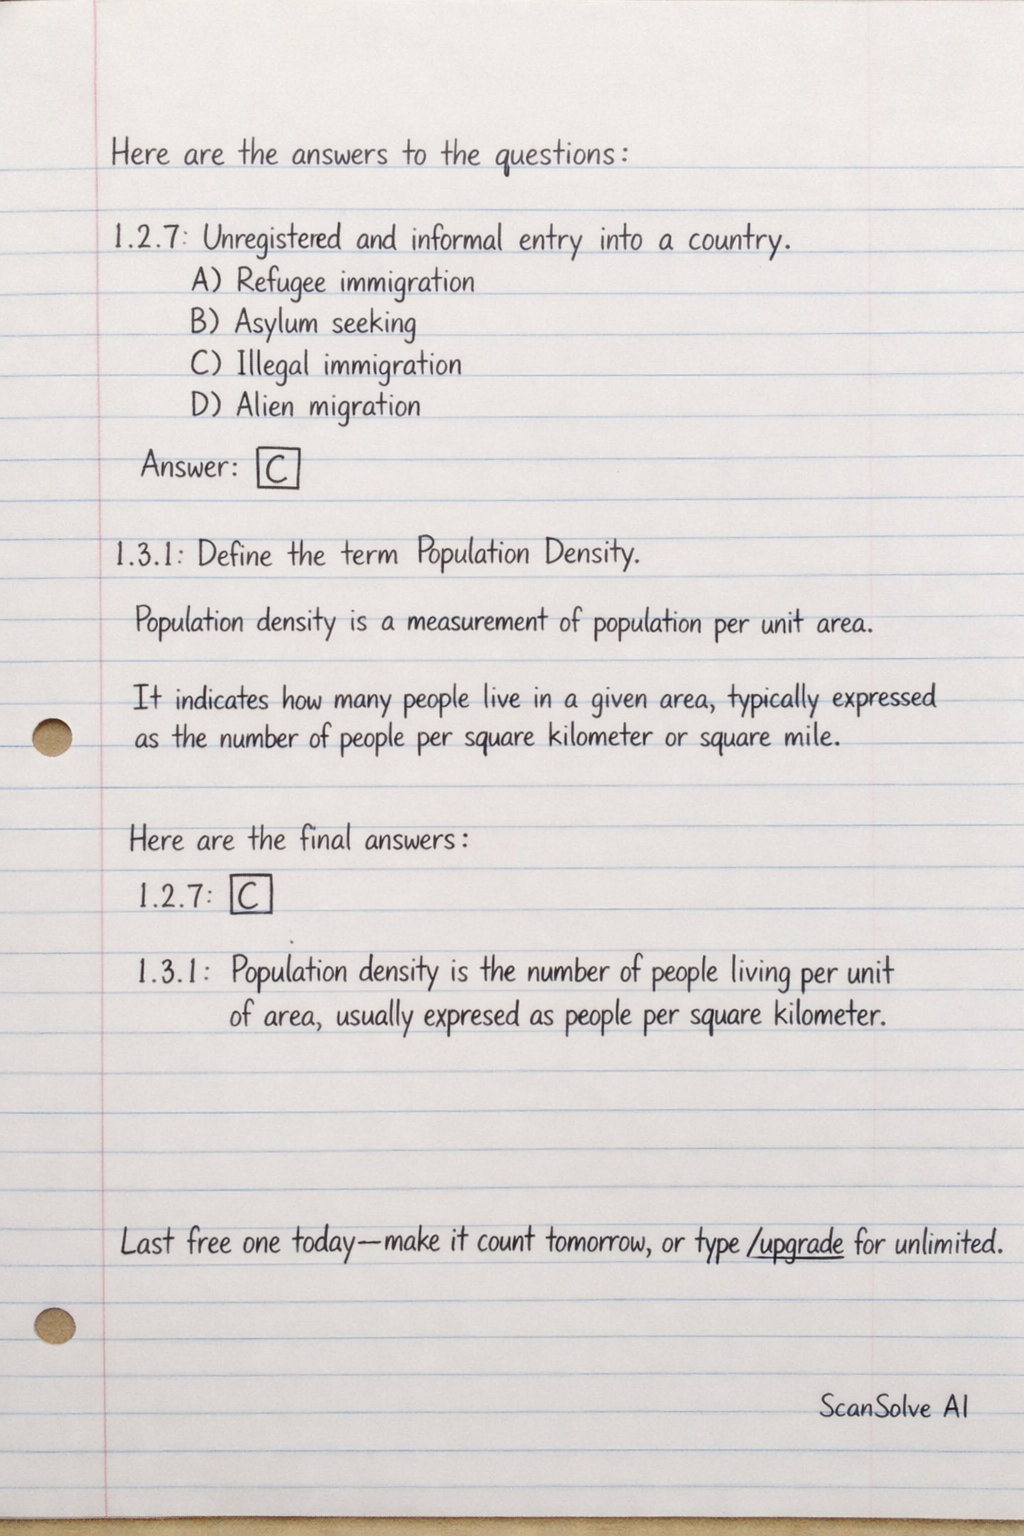 Here are the answers to the questions:
1.2.7: Unregistered and informal entry into a country.
A) Refugee immigration
B) Asylum seeking
C) Illegal immigration
D) Alien migration
Answer: C
1.3.1: Define the term Population Density.
Population density is a measurement of population per unit area.
It indicates how many people live in a given area, typically expressed
as the number of people per square kilometer or square mile.
Here are the final answers:
1.2.7: C
1.3.1: Population density is the number of people living per unit
of area, usually expresed as people per square kilometer.
Last free one today—make it count tomorrow, or type /upgrade for unlimited.
ScanSolve AI